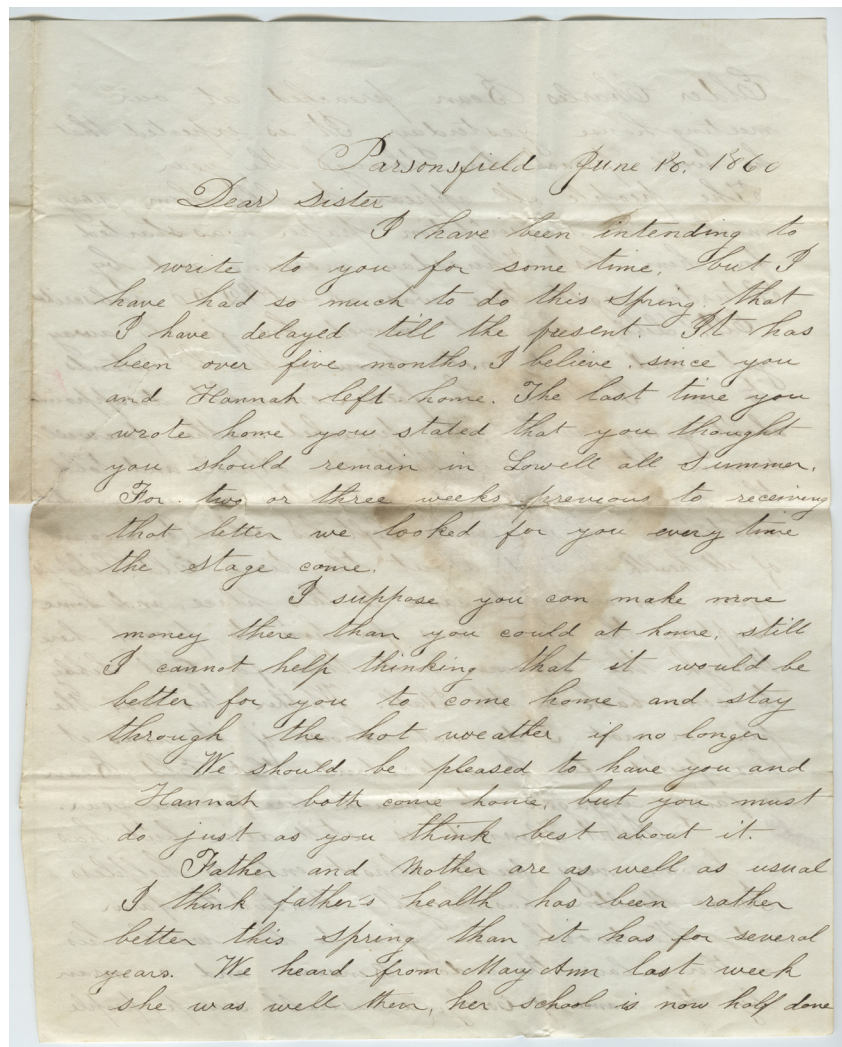 Parsonsfield June 18. 1860
Dear Sister
I have been intending to
write to you for some time, but I
have had so much to do this spring that
I have delayed till the present. It has
been over five months, I believe, since you
and Hannah left home. The last time you
wrote home you stated that you thought
you should remain in Lowell all Summer.
For two or three weeks previous to receiving
that letter we looked for you every time
the stage come.
I suppose you can make more
money there than you could at home, still
I cannot help thinking that it would be
better for you to come home and stay
through the hot weather if no longer
We should be pleased to have you and
Hannah both come home, but you must
do just as you think best about it.
Father and Mother are as well as usual
I think father's health has been rather
better this Spring than it has for several
years. We heard from Mary Ann last week
she was well then, her school is now half done